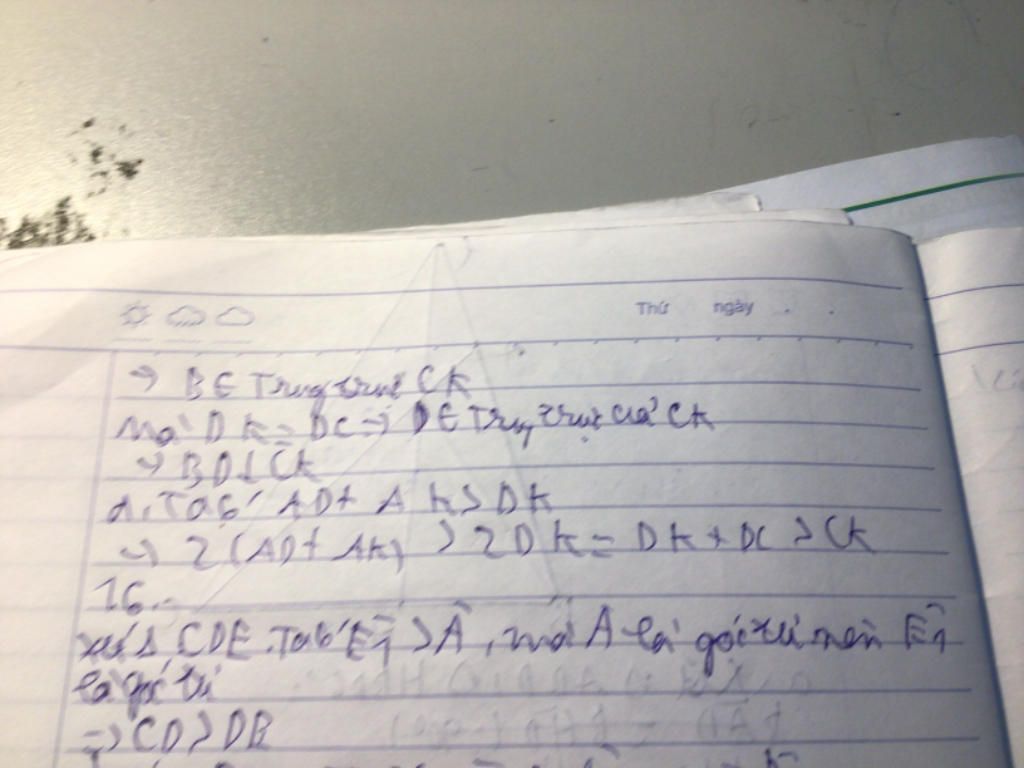 Thứ ngày
→ B ∈ Trung trực CK
Mà DK = DC → D ∈ Trung trực của CK
→ BD ⊥ CK
d, Ta có AD + AK > DK
→ 2(AD + AK) > 2DK = DK + DC > CK
16.
xét Δ CDE. Ta có Ê1 > Â, mà A là góc tù nên Ê1
là góc tù
=> CD > DE